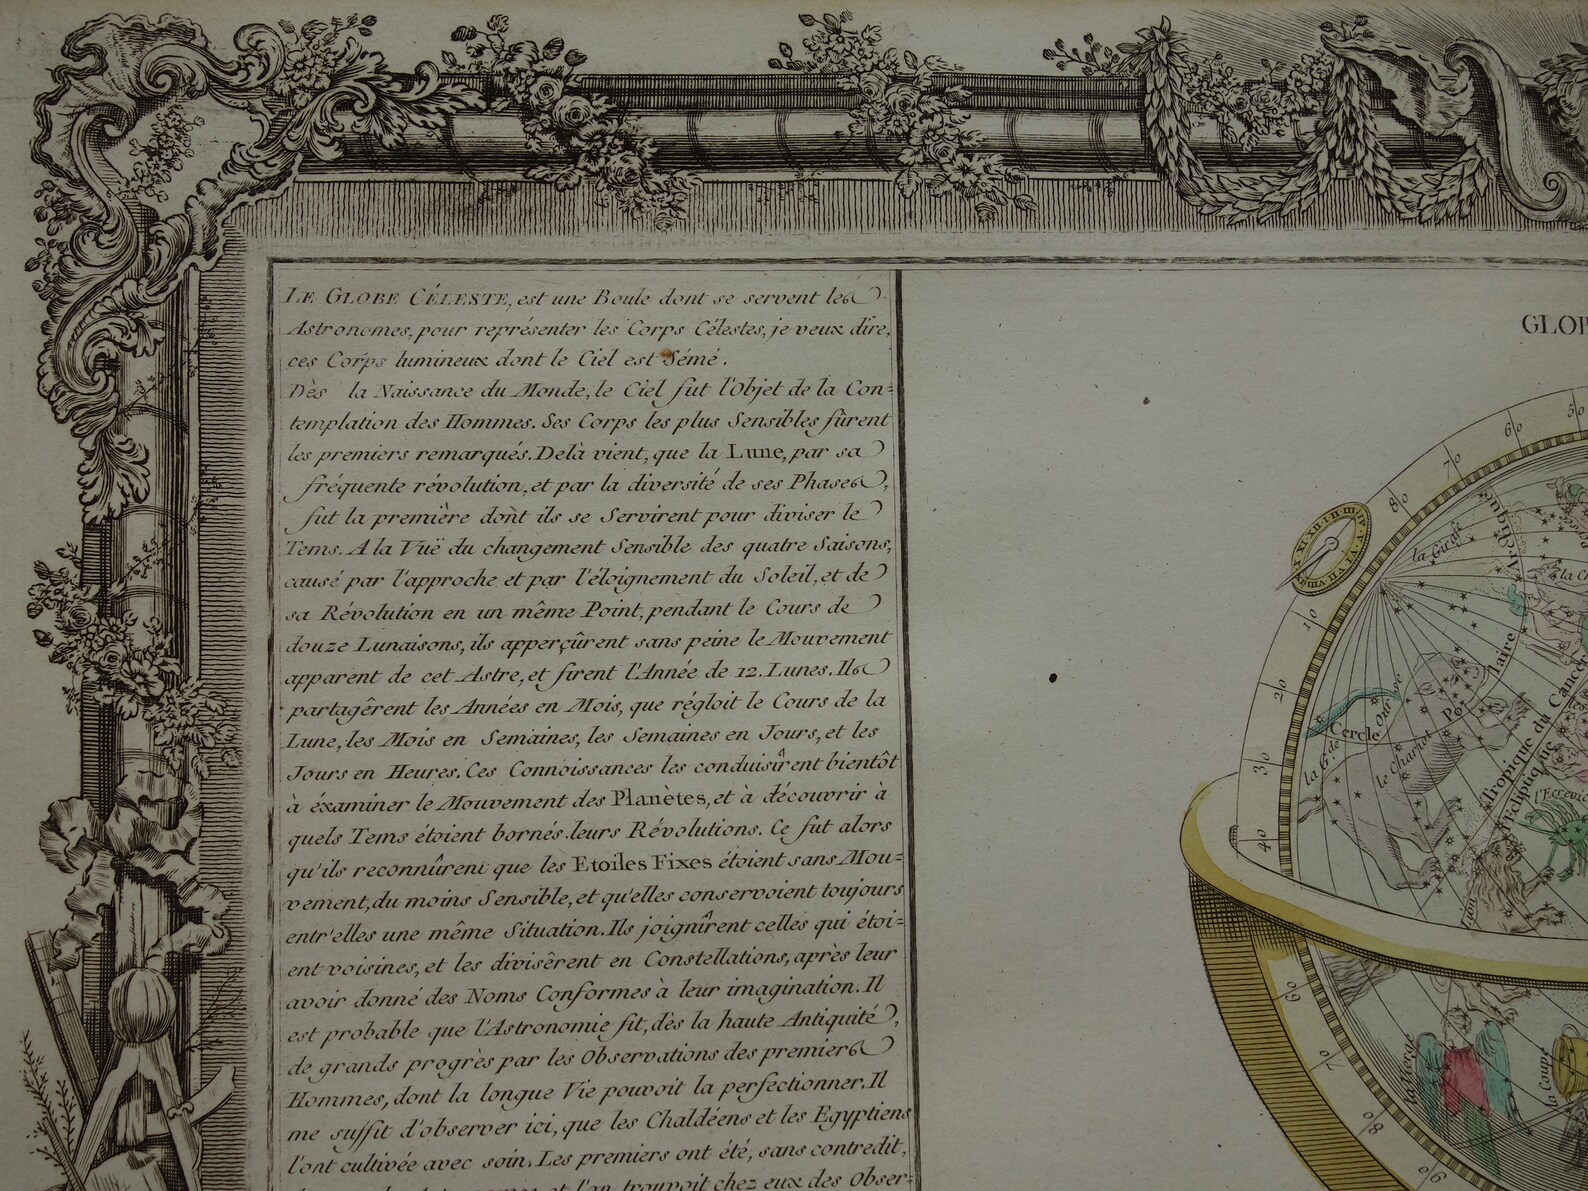 LE GLOBE CÉLESTE, est une Boule dont se servent les
Astronomes, pour représenter les Corps Célestes, je veux dire,
ces Corps lumineux dont le Ciel est Sémé.
Dès la Naissance du Monde, le Ciel fut l'Objet de la Con=
templation des Hommes. Ses Corps les plus Sensibles fûrent
les premiers remarqués. Delà vient, que la Lune, par sa
fréquente révolution, et par la diversité de ses Phases,
fut la première dont ils se Servirent pour diviser le
Tems. A la Vuë du changement Sensible des quatre Saisons,
causé par l'approche et par l'éloignement du Soleil, et de
sa Révolution en un même Point, pendant le Cours de
douze Lunaisons, ils apperçûrent sans peine le Mouvement
apparent de cet Astre, et firent l'Année de 12. Lunes. Ils
partagêrent les Années en Mois, que régloit le Cours de la
Lune, les Mois en Semaines, les Semaines en Jours, et les
Jours en Heures. Ces Connoissances les conduisîrent bientôt
à éxaminer le Mouvement des Planètes, et à découvrir à
quels Tems étoient bornés leurs Révolutions. Ce fut alors
qu'ils reconnûrent que les Etoiles Fixes étoient sans Mou=
vement, du moins Sensible, et qu'elles conservoient toujours
entr'elles une même Situation. Ils joignîrent celles qui étoi=
ent voisines, et les divisêrent en Constellations, après leur
avoir donné des Noms Conformes à leur imagination. Il
est probable que l'Astronomie fit, dès la haute Antiquité,
de grands progrès par les Observations des premiers
Hommes, dont la longue Vie pouvoit la perfectionner. Il
me suffit d'observer ici, que les Chaldéens et les Egyptiens
l'ont cultivée avec soin. Les premiers ont été, sans contredit,
et l'on trouvoit chez eux des Obser=
GLOB
50
60
70
80
10
20
30
40
60
70
80
90
la Giraf
Arctique
Cercle Polaire
la G.de Ourse
le Chariot
Tropique du Cancer
l'Ecliptique
l'Ecrevice
Lion
la Coupe